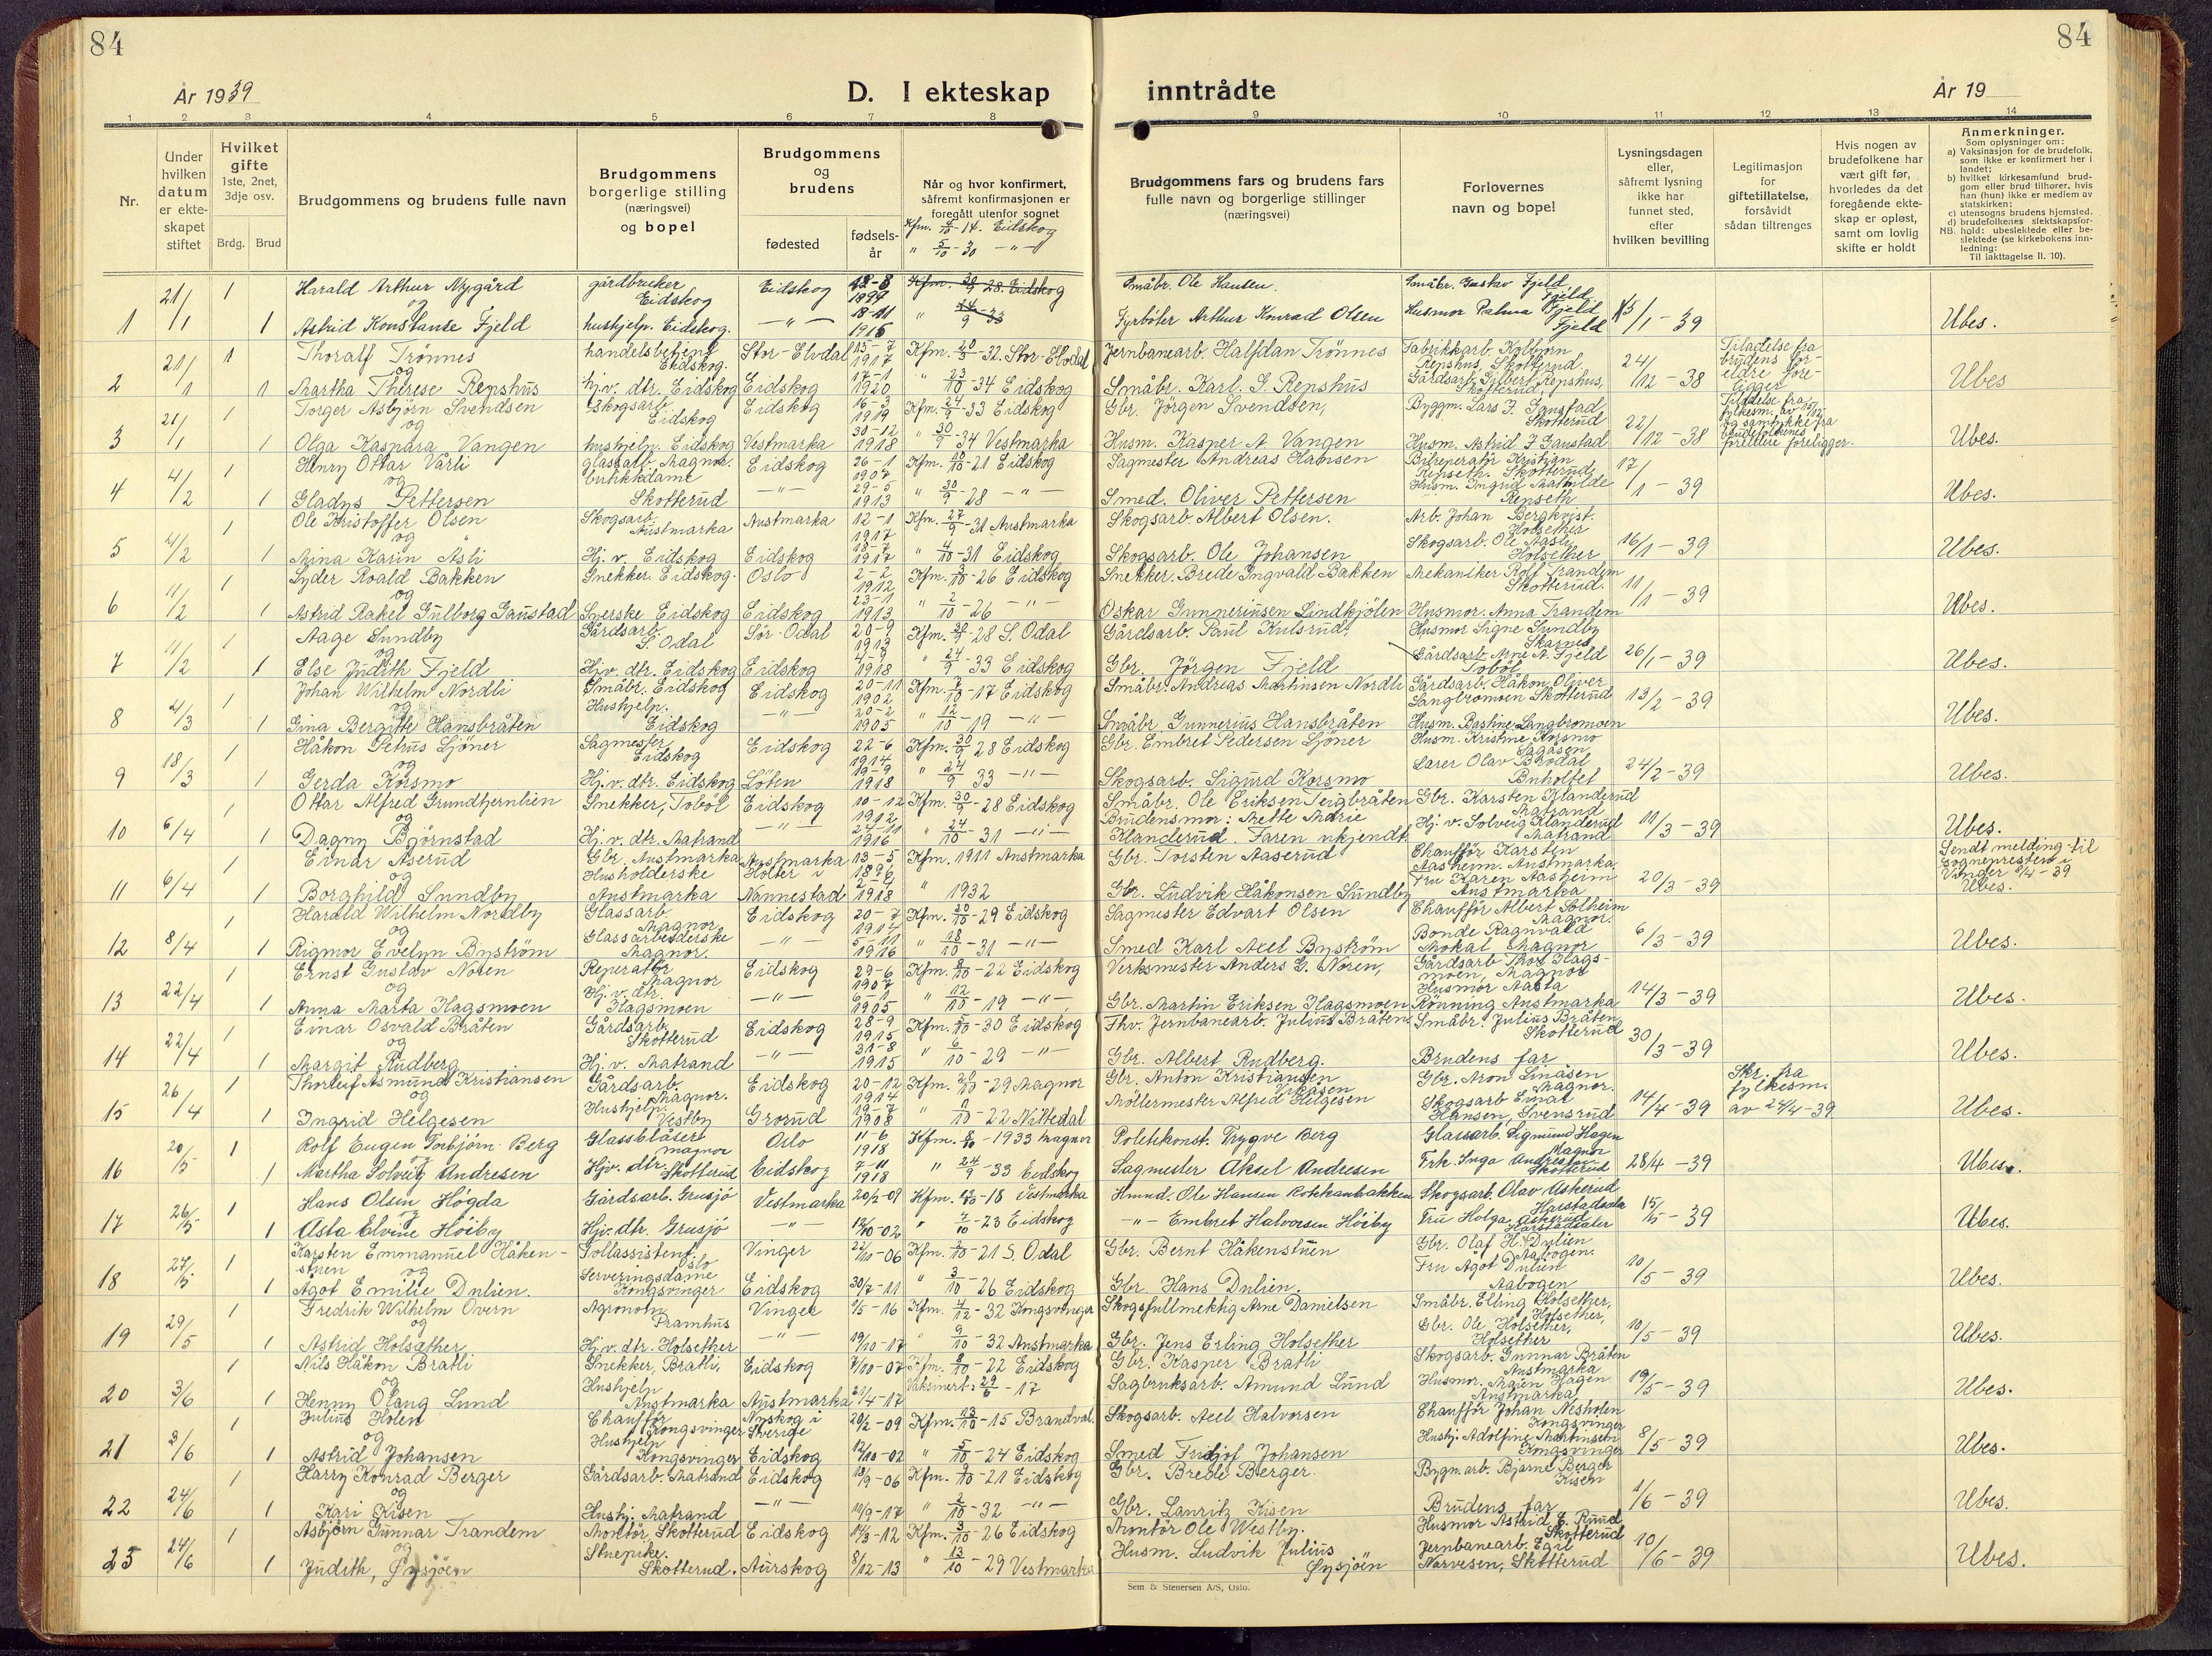 84
84
År 1939
D. I ekteskap
inntrådte
År 19
1 2 3 4 5 6 7 8 9 10 11 12 13 14
Nr.
Under hvilken datum er ekteskapet stiftet
Hvilket gifte
1ste, 2net, 3dje osv.
Brdg.
Brud
Brudgommens og brudens fulle navn
Brudgommens borgerlige stilling (næringsvei) og bopel
Brudgommens og brudens
fødested
fødsels-år
Når og hvor konfirmert, såfremt konfirmasjonen er foregått utenfor sognet
Kfm. 4/10-14. Eidskog
" 5/10-30 -"-
Brudgommens fars og brudens fars fulle navn og borgerlige stillinger (næringsvei)
Forlovernes navn og bopel
Lysningsdagen eller, såfremt lysning ikke har funnet sted, efter hvilken bevilling
Legitimasjon for giftetillatelse, forsåvidt sådan tiltrenges
Hvis nogen av brudefolkene har vært gift før, hvorledes da det foregående ekteskap er opløst, samt om lovlig skifte er holdt
Anmerkninger.
Som oplysninger om:
a) Vaksinasjon for de brudefolk, som ikke er konfirmert her i landet;
b) hvilket kirkesamfund brudgom eller brud tilhører, hvis han (hun) ikke er medlem av statskirken;
c) utensogns brudens hjemsted.
d) brudefolkenes slektskapsforhold: ubeslektede eller beslektede (se kirkebokens innledning:
NB.
Til iakttagelse II. 10).
1 21/1 1 Harald Arthur Nygård gårdbruker Eidskog Eidskog 12-8 1899 Kfm. 28 Eidskog Småbr. Ole Hansen. Småbr. Gustav Fjeld Fjeld
og
1 Astrid Konstanse Fjeld hushjelp. Eidskog. -"- 18-11 1915 " 9-33 Fyrbøter Arthur Konrad Olsen Husmor Palma Fjeld Fjeld 5/1-39 Ubes.
2 21/1 1 Thoralf Trönnes handelsbetjent Eidskog. Stor-Elvdal 15-7 1917 Kfm. 20/5-32. Stor-Elvdal Jernbanearb. Halfdan Trönnes Fabrikkarb. Kolbjörn Repshus, Skotterud.
og
1 Martha Therese Repshus hj.v. dtr. Eidskog Eidskog 17-1 1920 " 23/10-34 Eidskog Småbr. Karl. G. Repshus Gårdsarb. Gilbert Repshus, Skotterud 24/12-38 Tiladelse fra brudens foreldre foreligger Ubes
3 21/1 1 Torger Asbjörn Svendsen Skogsarb. Eidskog Eidskog 16-3 1919 Kfm. 24/9-33 Eidskog Gbr. Jörgen Svendsen, Byggm. Lars J. Gaustad Skotterud
og
1 Olga Kaspara Vangen hushjelp. Eidskog Vestmarka 30-12 1918 " 30/9-34 Vestmarka Husm. Kasper A. Vangen Husm. Astrid J. Gaustad 22/12-38 Tiladelse fra fylkesm. av 15/12 og samtykke fra brudefolkenes foreldre foreligger. Ubes.
4 4/2 1 Henry Ottar Vårli glassarb. Magnor. Eidskog 26-1 1907 Kfm. 10/10-21 Eidskog Sagmester Andreas Hansen Bilreperatör Kristian Repseth. Skotterud
og
1 Gladys Pettersen butikkdame Skotterud -"- 29-5 1913 " 30/9-28 -"- Smed. Oliver Pettersen Husm. Ingrid Mathilde Repseth 17/1-39 Ubes.
5 4/2 1 Ole Kristoffer Olsen Skogsarb. Austmarka Austmarka 12-1 1917 Kfm. 27/9-31 Austmarka Skogsarb. Albert Olsen. Arb. Johan Bergkvist. Holsether
og
1 Mina Karin Asli Hj. v. Eidskog Eidskog 18-7 1917 " 4/10-31 Eidskog Skogsarb. Ole Johansen Skogsarb. Ole Aasli, Holsether 16/1-39 Ubes.
6 11/2 1 Lyder Roald Bakken Snekker. Eidskog. Oslo 2-2 1912 Kfm. 3/10-26 Eidskog Snekker. Brede Ingvald Bakken Mekaniker Rolf Trandem Skotterud.
og
1 Astrid Rakel Gulborg Gaustad Syerske Eidskog Eidskog 23-1 1913 " 2/10-26 -"- Oskar Gunneriusen Lindkjölen Husmor. Anna Trandem 11/1-39 Ubes.
7 11/2 1 Aage Sundby Gårdsarb. S. Odal Sör-Odal 20-9 1913 Kfm. 30/9-28 S. Odal Gårdsarb. Paul Kulsrud, Husmor Signe Sundby Skarnes
og
1 Else Judith Fjeld Hjv. dtr. Eidskog Eidskog 4-9 1918 " 24/9-33 Eidskog Gbr. Jörgen Fjeld Gårdsarb. Arne A. Fjeld Toböl 26/1-39 Ubes.
8 4/3 1 Johan Wilhelm Nordli Småbr. Eidskog Eidskog 20-11 1902 Kfm. 7/10-17 Eidskog Småbr. Andreas Martinsen Nordli Gårdsarb. Håkon Oliver Langbromoen Skotterud
og
1 Gina Bergitte Hansbråten Hushjelp. Eidskog -"- 20-2 1905 " 12/10-19 -"- Småbr. Gunnerius Hansbråten Husm. Pastine Langbromoen 13/2-39 Ubes.
9 18/3 1 Håkon Petrus Sjöner Sagmester Eidskog Eidskog 22-6 1914 Kfm. 30/9 28 Eidskog Gbr. Embret Pedersen Sjöner Husm. Kristine Korsmo Sagåsen
og
1 Gerda Korsmo Hj.v. dtr. Eidskog Löten 19-9 1918 " 24/9 33 -"- Skogsarb. Sigurd Korsmo Lærer Olav Bködal Buholtet 24/2-39 Ubes.
10 6/4 1 Ottar Alfred Grundtjernlien Snekker, Toböl Eidskog 10-12 1912 Kfm. 30/9-28 Eidskog Småbr. Ole Eriksen Teigbråten Gbr. Karsten Klanderud Matrand
og
1 Dagny Björnstad Hj.v. dtr. Matrand -"- 24-11 1916 " 24/10-31 -"- Brudens mor: Mette Marie Klanderud. Faren ukjendt. Hj. v. Solveig Klanderud Matrand 11/3-39 Ubes.
11 6/4 1 Einar Åserud Gbr. Austmarka Austmarka 13-5 1896 Kfm. 1911 Austmarka Gbr. Torsten Aaserud Chaufför Karsten Aasheim. Austmarka
og
1 Borghild Sundby Husholderske Austmarka Holter i Nannestad 1918 " 1932 Gbr. Ludvik Håkonsen Sundby Fru Karen Aasheim Austmarka 20/3-39 Sendt melding til Sogneprestem i Vinger 8/4-39 Ubes.
12 8/4 1 Harald Wilhelm Nordby Glassarb. Magnor Eidskog 20-7 1914 Kfm. 20/10-29 Eidskog Sagmester Edvart Olsen Chaufför Albert Solheim Magnor.
og
1 Rigmor Evelyn Byström Glassarbeiderske Magnor. -"- 5-11 1916 " 18/10-31 -"- Smed Karl Axel Byström Bonde Ragnvald Mokal Magnor 6/3-39 Ubes.
13 22/4 1 Ernst Gustav Noren Reperatör Magnor Eidskog 29-6 1907 Kfm. 8/10-22 Eidskog Verksmester Anders G. Noren, Gårdsarb Thor Hagsmoen, Magnor
og
1 Anna Marta Hagsmoen Hj. v. dtr. Hagsmoen -"- 6-11 1905 " 12/10-19 -"- Gbr. Martin Eriksen Hagsmoen Husmor Aasta Rönning Austmarka 14/3-39 Ubes.
14 22/4 1 Einar Osvald Bråten Gårdsarb. Skotterud Eidskog 28-9 1915 Kfm. 5/10-30 Eidskog Fhv. Jernbanearb. Julius Bråten. Småbr. Julius Bråten Skotterud
og
1 Margit Rudberg Hj. v. Matrand -"- 31-8 1915 " 6/10-29 -"- Gbr. Albert Rudberg. Brudens far 30/3-39 Ubes.
15 26/4 1 Thorleif Asmund Kristiansen Gårdsarb. Magnor. Eidskog 20-12 1914 Kfm. 20/10-29 Magnor Gbr. Anton Kristiansen Vikåsen Gbr. Aron Linåsen Magnor.
og
1 Ingrid Helgesen Hushjelp. Vestby Grorud 19-7 1908 " 1/10-22 Nittedal Möllermester Alfred Helgesen Skogsarb Einar Hansen, Svensrud 14/4-39 Skr. fra fylkesm. av 24/4-39 Ubes.
16 20/5 1 Rolf Eugen Torbjörn Berg Glassblåser Magnor Oslo 11-6 1918 Kfm. 8/10-1933 Magnor Politikonst. Trygve Berg Glassarb. Sigmund Hagen Magnor
og
1 Martha Solveig Andresen Hjv. dtr. Skotterud Eidskog 7-11 1918 " 24/9-33 Eidskog Sagmester Aksel Andresen Frk. Inga Andresen Skotterud 28/4-39 Ubes.
17 26/5 1 Hans Olsen Högda Gårdsarb. Grusjö Vestmarka 20/2-09 Kfm. -18 Vestmarka Hmnd. Ole Hansen Kokkanbakken Skogsarb. Olav Askerud Harstadsæter
og
1 Asta Elvine Höiby Hjv. dtr. Grusjö -"- 12/10-02 " 7/10-23 Eidskog -"- Embret Halvorsen Höiby Fru Helga Askerud Harstadsæter 15/5-39 Ubes.
18 27/5 1 Karsten Emmanuel Håkenstuen Tollassistent Oslo Vinger 22/11-06 Kfm. 2/10-21 S. Odal Gbr. Bernt Håkenstuen Gbr. Olaf H. Dulien Aabogen.
og
1 Ågot Emilie Dulien. Serveringsdame Kongsvinger Eidskog 30/7-11 " 3/10-26 Eidskog Gbr. Hans Dulien. Fru Ågot Dulien Aabogen 10/5-39 Ubes.
19 29/5 1 Fredrik Wilhelm Overn Agronom Pramhus Vinger 1/5-16 Kfm. 4/12-32 Kongsvinger Skogsfullmektig Arne Danielsen Småbr. Elling Holsether, Holsether,
og
1 Astrid Holsæther Hj.v. dtr. Holsether -"- 19/10-17 " 9/10-32 Austmarka Gbr. Jens Erling Holsether Gbr. Ole Holsether, Holsether 10/5-39 Ubes.
20 3/6 1 Nils Håkon Bratli Snekker, Bratli, Eidskog 7/10-07 Kfm. 8/10-22 Eidskog Gbr. Kasper Bratli Skogsarb. Gunnar Bråten Austmarka
og
1 Henny Olaug Lund Hushjelp Austmarka Austmarka 21/4-17 Vaksinert: 29/6-17 Sagbruksarb. Amund Lund Husmor. Maien Hagen Austmarka 19/5-39 Ubes.
21 3/6 1 Julius Holen Chaufför Kongsvinger Nyskog i Sverige 20/2-09 Kfm. 13/10-15 Brandval. Skogsarb. Axel Halvorsen Chaufför Johan Nesholen Kongsvinger
og
1 Astrid Johansen Hushjelp Kongsvinger Eidskog 12/10-02 " 5/10-24 Eidskog Smed Fridjof Johansen Hushj. Adolfine Martinsen Kongsvinger 8/5-39 Ubes.
22 24/6 1 Harry Konrad Berger Gårdsarb. Matrand Eidskog 13/9-06 Kfm. 9/10-21 Eidskog Gbr. Brede Berger. Bygn.arb. Bjarne Berger Kisen
og
1 Kari Kisen Hushj. Matrand -"- 10/9-17 " 2/10-32 -"- Gbr. Lauritz Kisen Brudens far 1/6-39 Ubes.
23 24/6 1 Asbjörn Gunnar Trandem Montör, Skotterud Eidskog 14/3-12 Kfm. 3/10-26 Eidskog Montör Ole Westby. Husmor Astrid E. Ruud Skotterud
og
1 Judith, Øysjöen Stuepike. Skotterud. Aurskog 8/12-13 " 13/10-29 Vestmarka Husm. Ludvik Julius Øysjöen Jernbanearb. Egil Narvesen, Skotterud 10/6-39 Ubes.
Sem & Stenersen A/S, Oslo.